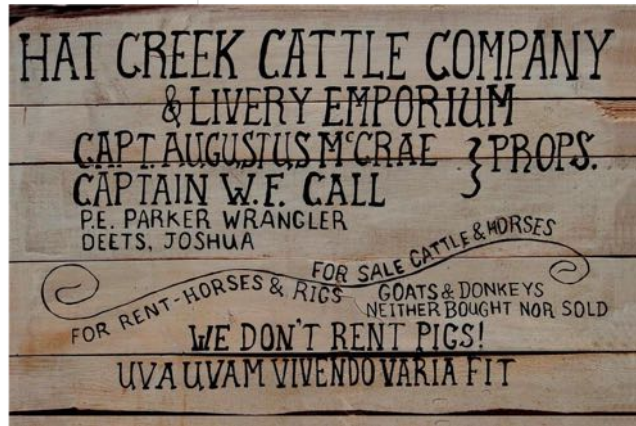 HAT CREEK CATTLE COMPANY
& LIVERY EMPORIUM
CAPT. AUGUSTUS McCRAE } PROPS.
CAPTAIN W. F. CALL
P.E. PARKER WRANGLER
DEETS, JOSHUA
FOR RENT-HORSES & RIGS
FOR SALE CATTLE & HORSES
GOATS & DONKEYS
NEITHER BOUGHT NOR SOLD
WE DON'T RENT PIGS!
UVA UVAM VIVENDO VARIA FIT